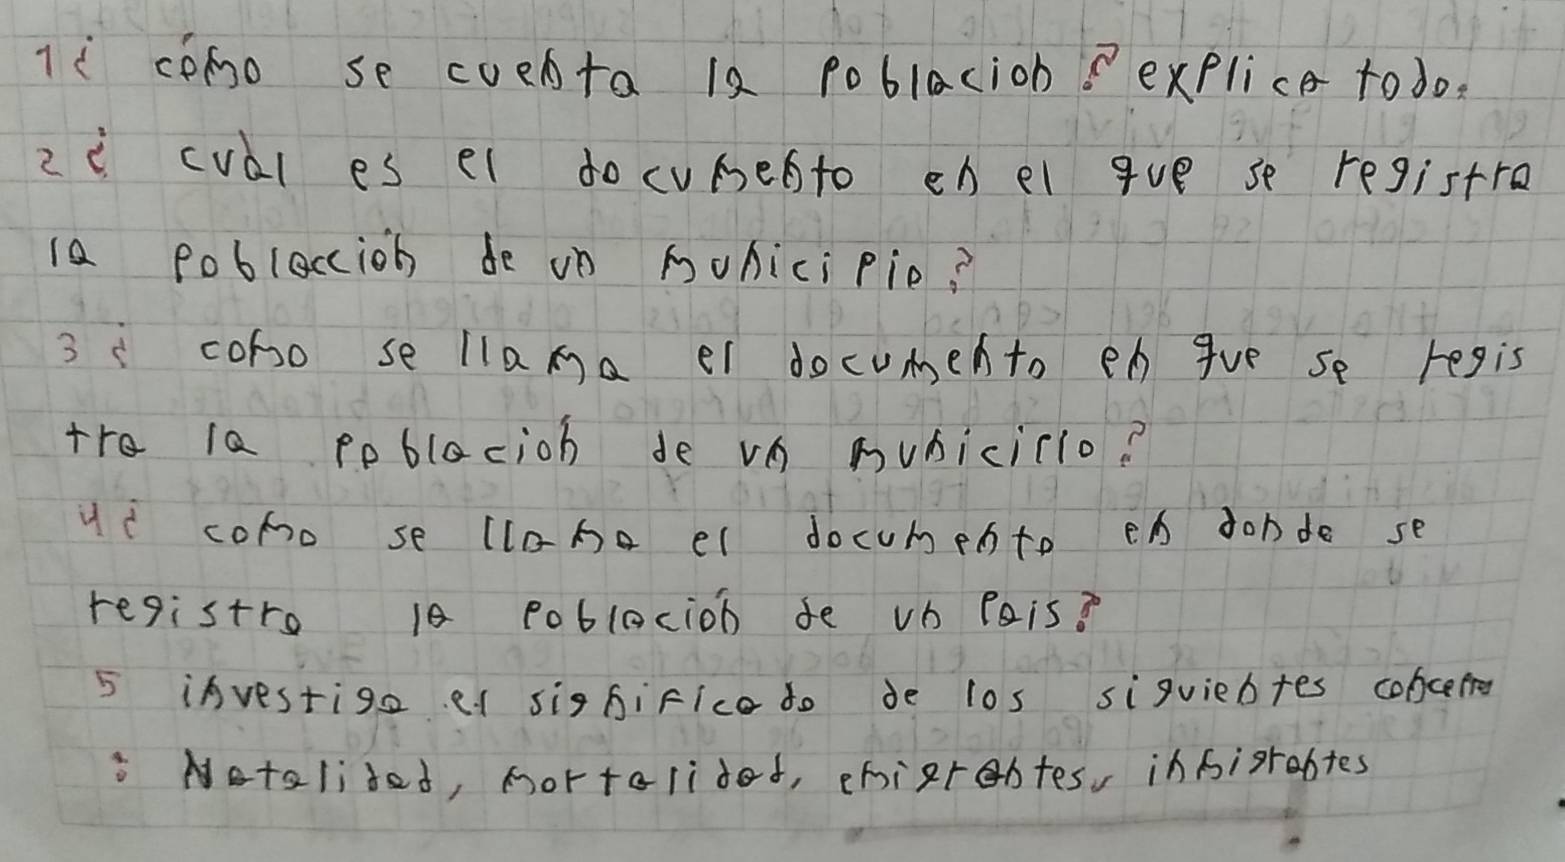 1¿ cómo se cuenta la poblacion? explica todo:
2¿ cuál es el documento en el que se registra
la poblacción de un municipio?
3¿ como se llama el documento en que se regis
tra la población de un municirio?
4¿ como se llama el documento en donde se
registra la población de un Pais?
5 investiga el significado de los siguientes
: Natalidad, mortalidad, emigrantes, inmigrantes